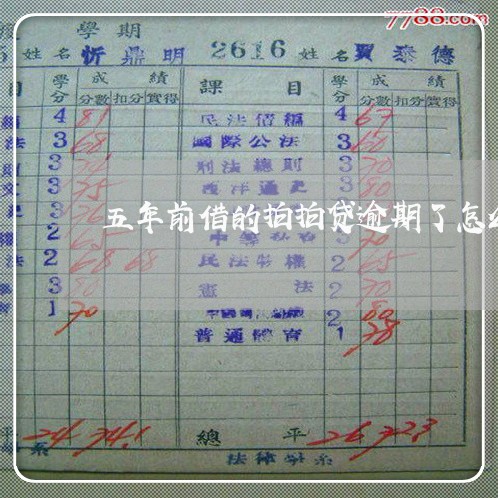 7788.com
學期
5 姓名 忻鼎明 2616 姓名 賈泰德
目 學分 成績 課目 學分 成績
分數 扣分 實得 分數 扣分 實得
4 81 民法債編 4 67
法 3 68 國際公法 3 60
3 刑法總則 3 70
3 75 西洋通史 3 80
五年前借的拍拍贷逾期了怎
2 65 3 70
法 2 68 68 民法物權 2 65
3 80 憲法 2 70
1 70 2 80
普通體育 1 78
24 74.1 總平 26 72.3
系 法律學系